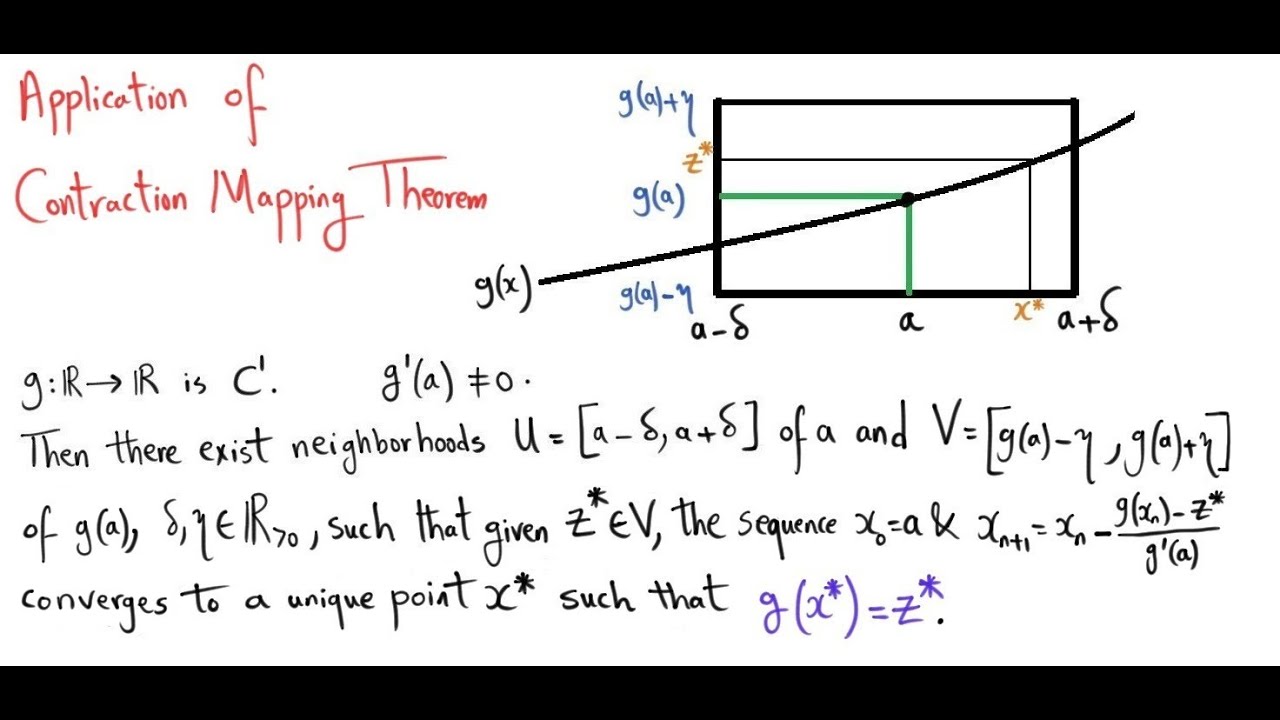 Application of
Contraction Mapping Theorem
g(a)+η
z*
g(a)
g(x)
g(a)-η
a-δ
a
x*
a+δ
g:ℝ→ℝ is C'. g'(a)≠0.
Then there exist neighborhoods U=[a-δ,a+δ] of a and V=[g(a)-η,g(a)+η]
of g(a), δ,η∈ℝ>0, such that given z*∈V, the sequence x₀=a & xₙ₊₁=xₙ-(g(xₙ)-z*)/g'(a)
converges to a unique point x* such that g(x*)=z*.